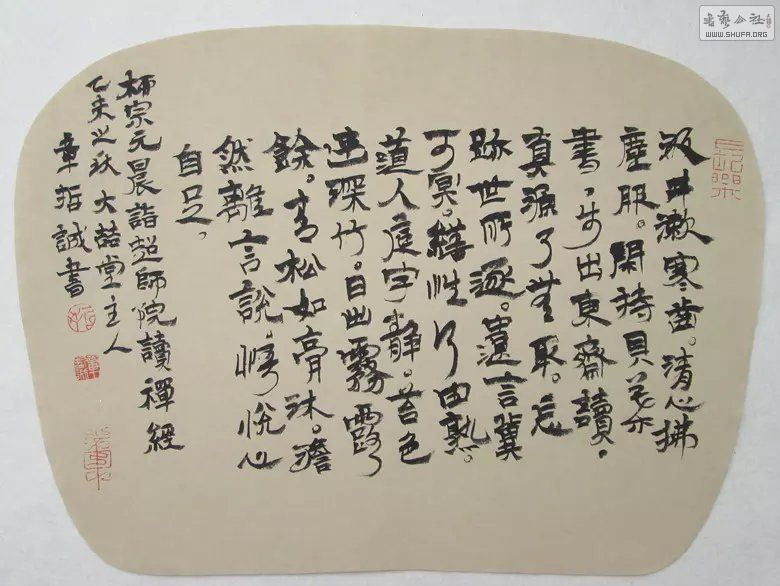 書藝公社
WWW.SHUFA.ORG
汲井漱寒齒。清心拂
塵服。閑持貝葉
書,步出東齋讀,
真源了無取。忘
跡世所逐。遺言冀
可冥。繕性何由熟。
道人庭宇靜。苔色
連深竹。日出霧露
餘。青松如膏沐。澹
然離言說。悟悅心
自足。
柳宗元晨詣超師院讀禪經
乙未之秋大喆堂主人
章哲誠書